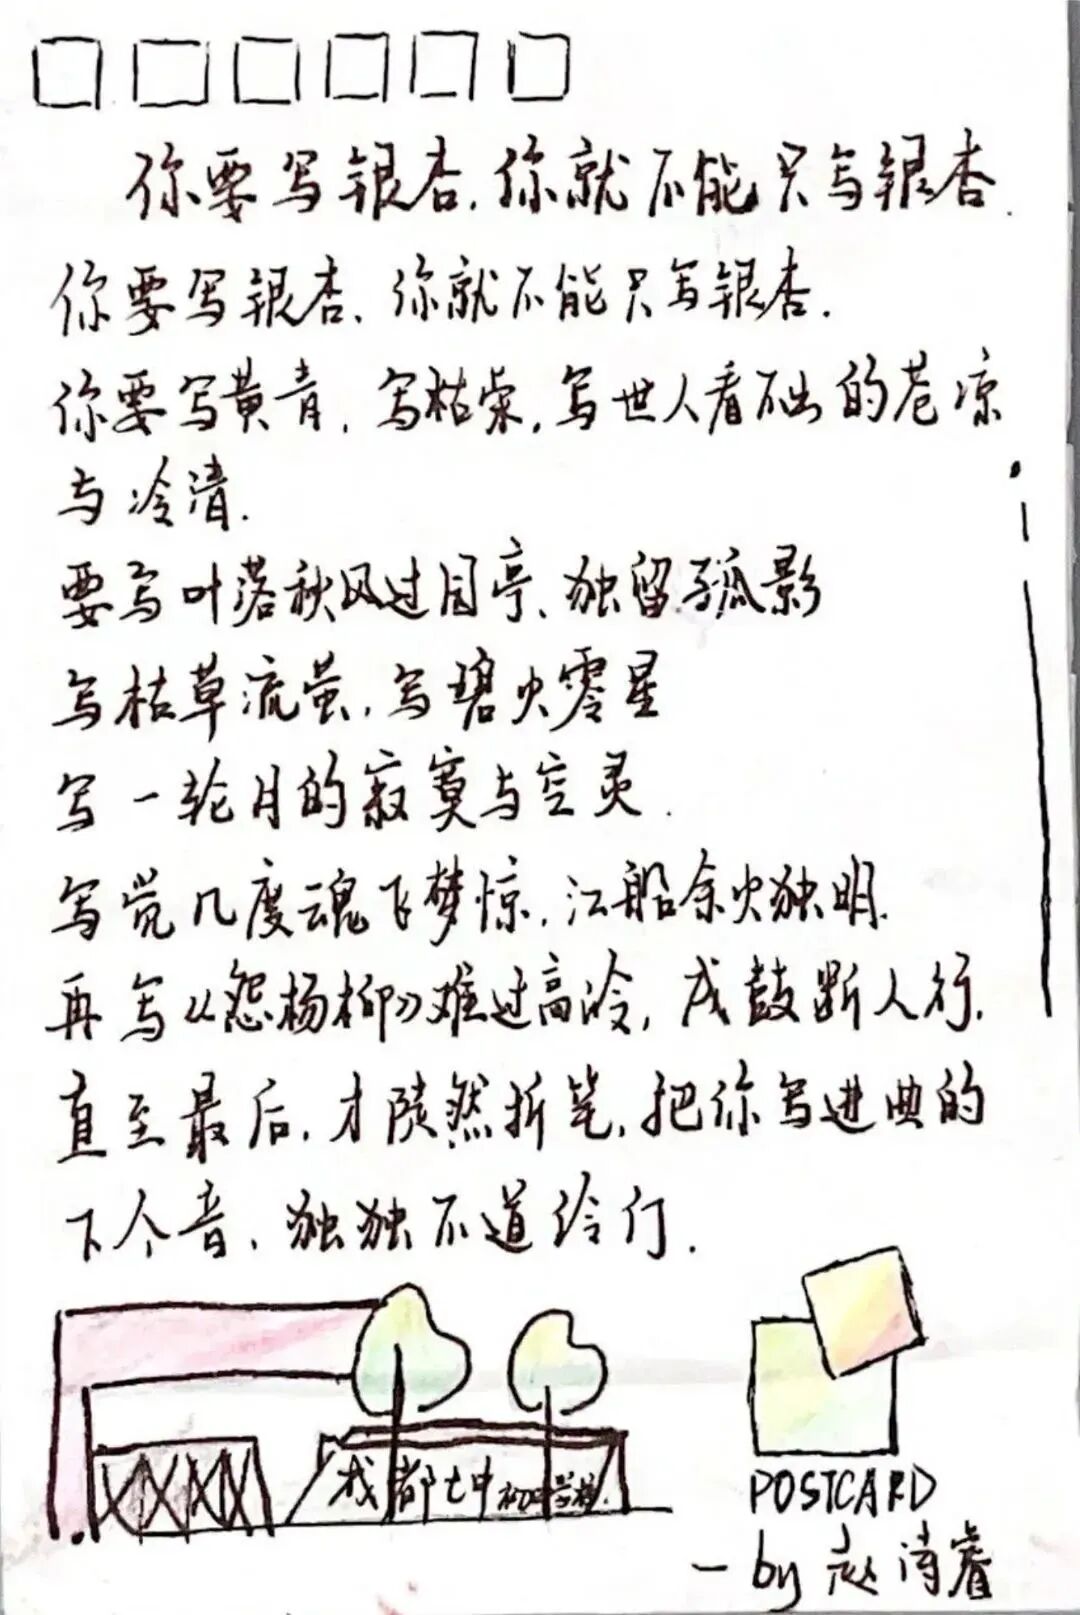 你要写银杏,你就不能只写银杏.
你要写银杏,你就不能只写银杏.
你要写黄青,写枯荣,写世人看不出的苍凉
与冷清.
要写叶落秋风过月亭,独留孤影
写枯草流萤,写碧火零星
写一轮月的寂寞与空灵.
写觉几度魂飞梦惊,江船余火独明.
再写《怨杨柳》难过高泠,戍鼓断人行.
直至最后,才陡然折笔,把你写进曲的
下个音,独独不道伶仃.
成都七中初中学校
POSTCARD
—by 赵